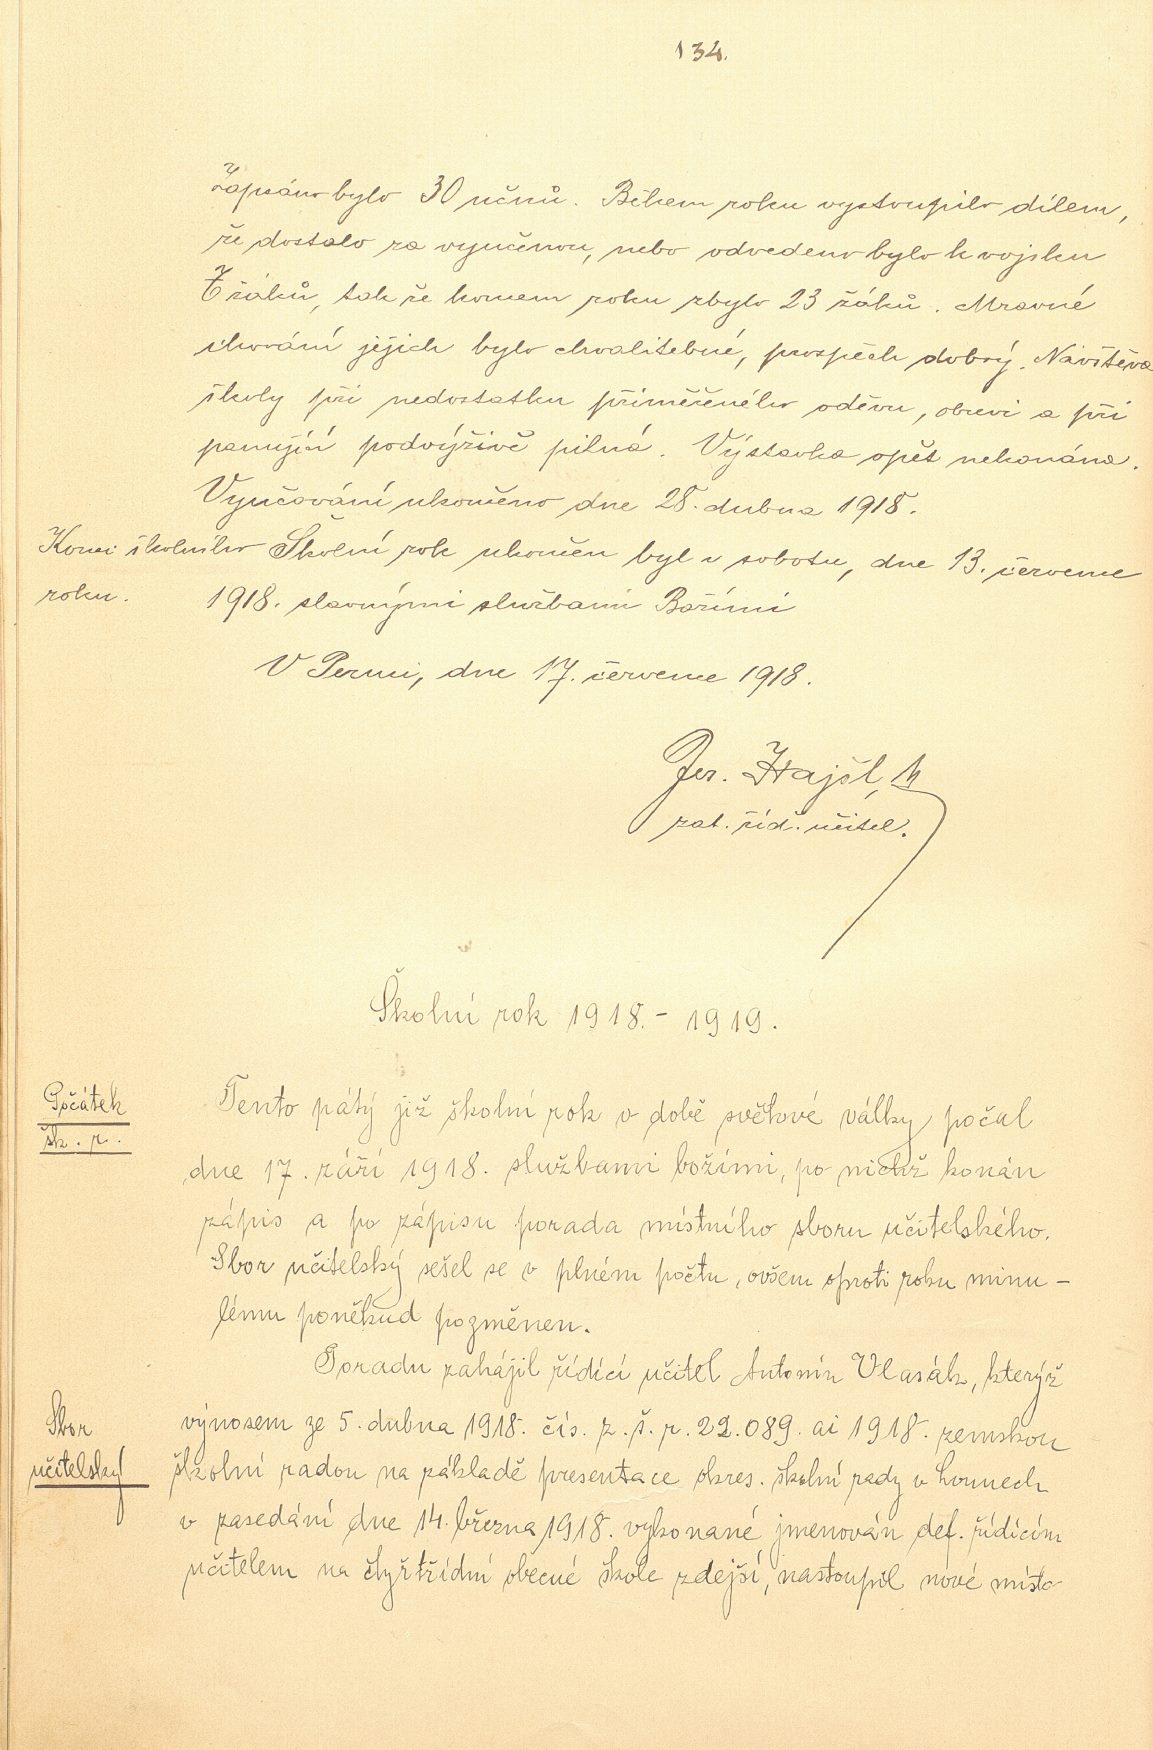 134.
Zapsáno bylo 30 učňů. Během roku vystoupilo dílem,
že dostalo za vyučenou, nebo odvedeno bylo k vojsku
7 žáků, tak že koncem roku zbylo 23 žáků. Mravné
chování jejich bylo chvalitebné, prospěch dobrý. Návštěva
školy při nedostatku přiměřeného oděvu, obuvi a při
panující podvýživě pilná. Výstavka opět nekonána.
Vyučování ukončeno dne 28. dubna 1918.
Konec školního
roku.
Školní rok ukončen byl v sobotu, dne 13. července
1918. slavnými službami Božími
V Peruci, dne 17. července 1918.
Jar. Hajšl,
zat. říd. učitel.
Školní rok 1918. - 1919.
Počátek
šk. r.
Tento pátý již školní rok v době světové války počal
dne 17. září 1918. službami božími, po nichž konán
zápis a po zápisu porada místního sboru učitelského.
Sbor učitelský sešel se v plném počtu, ovšem oproti roku minu-
lému poněkud pozměnen.
Poradu zahájil řídící učitel Antonín Vlasák, kterýž
Sbor
učitelský
výnosem ze 5. dubna 1918. čís. z. š. r. 22.089. ai 1918. zemskou
školní radou na základě presentace okres. školní rady v Lounech
v zasedání dne 14. března 1918. vykonané jmenován def. řídícím
učitelem na čtyřtřídní obecné škole zdejší, nastoupil nové místo